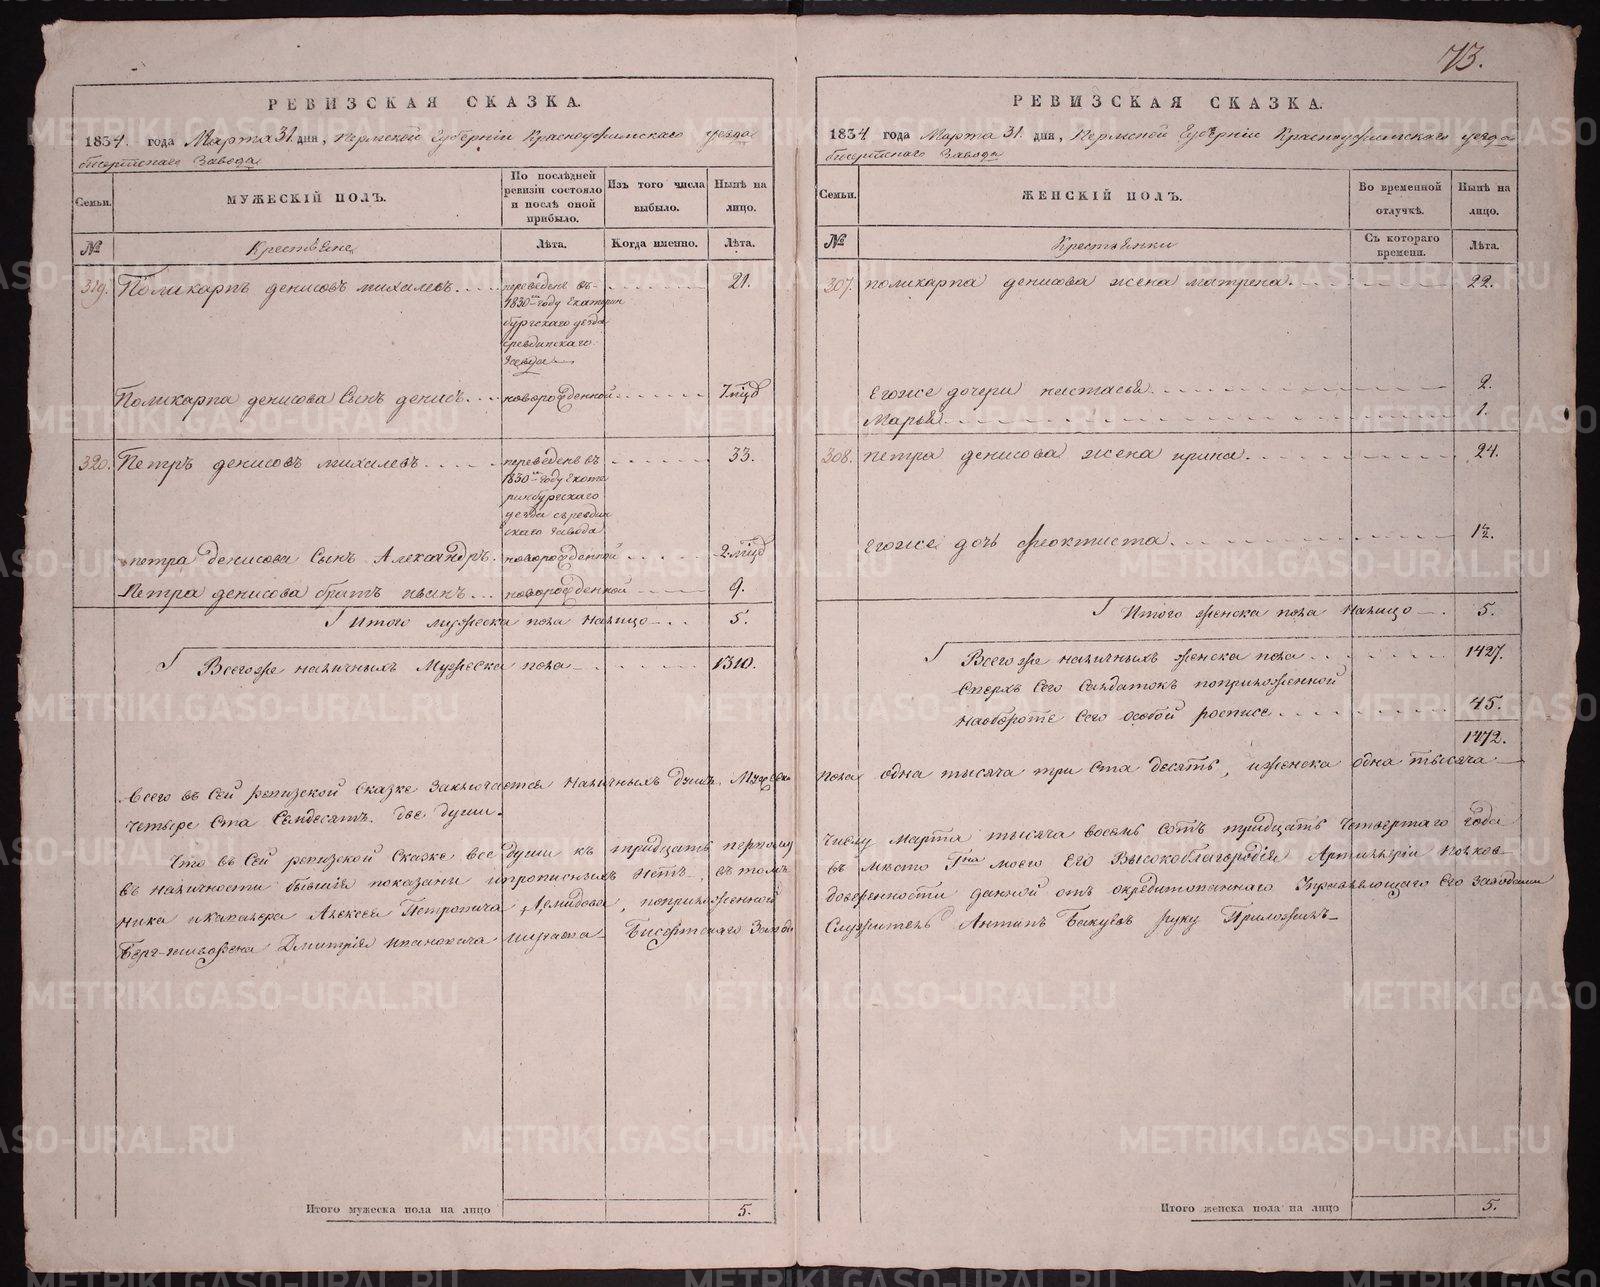 73.
РЕВИЗСКАЯ СКАЗКА.
1834 года Марта 31. дня, Пермской Губернiи Красноуфимскаго уезда
бисертскаго Завода
Семьи.
МУЖЕСКIЙ ПОЛЪ.
По послѣдней ревизiи состояло и послѣ оной прибыло.
Изъ того числа выбыло.
Нынѣ на лицо.
№
Крестьяне
Лѣта.
Когда именно.
Лѣта.
319. Поликарпъ денисовъ михалевъ
переведенъ въ
1830м году Екатерин
бургскаго уезда
сревдинскаго
Завода
21.
Поликарпа денисова Сынъ денисъ
новорожденной
7 мцъ
320. Петръ денисовъ михалевъ
переведенъ въ
1830м году Екате
ринбургскаго
уезда съревдин
скаго завода
33.
петра денисова Сынъ Александръ
новорожденной
2 мцъ
Петра денисова братъ иванъ
новорожденной
9.
Итого мужеска пола налицо
5.
Всегоже наличныхъ Мужеска пола
1310.
всего въ сей ревизской сказке заключается наличныхъ душъ. Мужеска
четыре ста семдесятъ две души.
Что въ сей ревизской сказке все души къ тридцать первому
въ наличности бывшiя показаны ипрописныхъ нетъ, въ томъ
ника икавалера Алексея Петровича Демидова, поприложенной
Берг-гешворена Дмитрiя Ивановича Бисертскаго Завода
Итого мужеска пола на лицо
5.
РЕВИЗСКАЯ СКАЗКА.
1834 года Марта 31. дня, Пермской Губернiи Красноуфимскаго уезда
бисертскаго Завода
Семьи.
ЖЕНСКIЙ ПОЛЪ.
Во временной отлучкѣ.
Нынѣ на лицо.
№
Крестьянки
Съ котораго времени.
Лѣта.
307. поликарпа денисова жена матрена
22.
Егоже дочери настасья
2.
Марья
1.
308. петра денисова жена ирина
24.
Егоже дочь феоктиста
1½.
Итого женска пола налицо
5.
Всегоже наличныхъ женска пола
1427.
Сверхъ Сего Салдатокъ поприложенной
наобороте Сего особой росписе
45.
1472.
пола одна тысяча три Ста десять, иженска одна тысяча
числу Марта тысяча восемь сотъ тридцать четвертаго года
въ место Гна моего Его Высокоблагородiя Артиллерiи Полков-
доверенности данной отъ окредитованнаго Управляющаго Его Заводами
Служитель Антипъ руку Приложилъ
Итого женска пола на лицо
5.